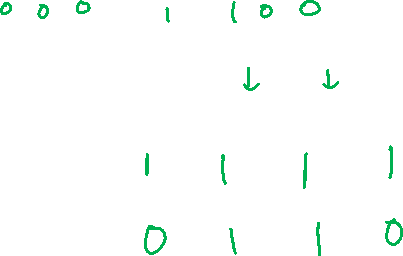 0 0 0 1 1 0 0
↓ ↓
1 1 1 1
0 1 1 0